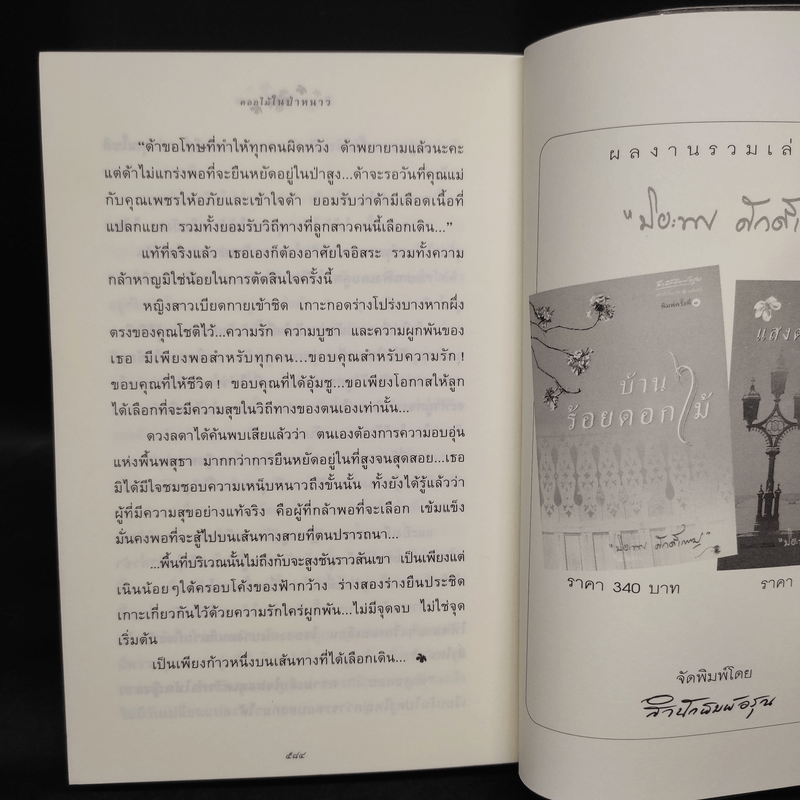 ดอกไม้ในป่าหนาว
“ด้าขอโทษที่ทำให้ทุกคนผิดหวัง ด้าพยายามแล้วนะคะ
แต่ด้าไม่แกร่งพอที่จะยืนหยัดอยู่ในป่าสูง...ด้าจะรอวันที่คุณแม่
กับคุณเพชรให้อภัยและเข้าใจด้า ยอมรับว่าด้ามีเลือดเนื้อที่
แปลกแยก รวมทั้งยอมรับวิถีทางที่ลูกสาวคนนี้เลือกเดิน...”
แท้ที่จริงแล้ว เธอเองก็ต้องอาศัยใจอิสระ รวมทั้งความ
กล้าหาญมิใช่น้อยในการตัดสินใจครั้งนี้
หญิงสาวเบียดกายเข้าชิด เกาะกอดร่างโปร่งบางหากผึ่ง
ตรงของคุณโชติไว้...ความรัก ความบูชา และความผูกพันของ
เธอ มีเพียงพอสำหรับทุกคน...ขอบคุณสำหรับความรัก!
ขอบคุณที่ให้ชีวิต! ขอบคุณที่ได้อุ้มชู...ขอเพียงโอกาสให้ลูก
ได้เลือกที่จะมีความสุขในวิถีทางของตนเองเท่านั้น...
ดวงลดาได้ค้นพบเสียแล้วว่า ตนเองต้องการความอบอุ่น
แห่งพื้นพสุธา มากกว่าการยืนหยัดอยู่ในที่สูงจนสุดสอย...เธอ
มิได้มีใจชมชอบความเหน็บหนาวถึงขั้นนั้น ทั้งยังได้รู้แล้วว่า
ผู้ที่มีความสุขอย่างแท้จริง คือผู้ที่กล้าพอที่จะเลือก เข้มแข็ง
มั่นคงพอที่จะสู้ไปบนเส้นทางสายที่ตนปรารถนา...
...พื้นที่บริเวณนั้นไม่ถึงกับจะสูงชันราวสันเขา เป็นเพียงแต่
เนินน้อยๆใต้ครอบโค้งของฟ้ากว้าง ร่างสองร่างยืนประชิด
เกาะเกี่ยวกันไว้ด้วยความรักใคร่ผูกพัน...ไม่มีจุดจบ ไม่ใช่จุด
เริ่มต้น
เป็นเพียงก้าวหนึ่งบนเส้นทางที่ได้เลือกเดิน...
๕๘๔
ผลงานรวมเล่
"ปิยะพร ศักดิ์เ
พิมพ์ครั้งที่
บ้าน
ร้อยดอกไม้
"ปิยะพร ศักดิ์เกษม"
แสงด
"ปิย
ราคา 340 บาท
ราคา
จัดพิมพ์โดย
สำนักพิมพ์อรุณ